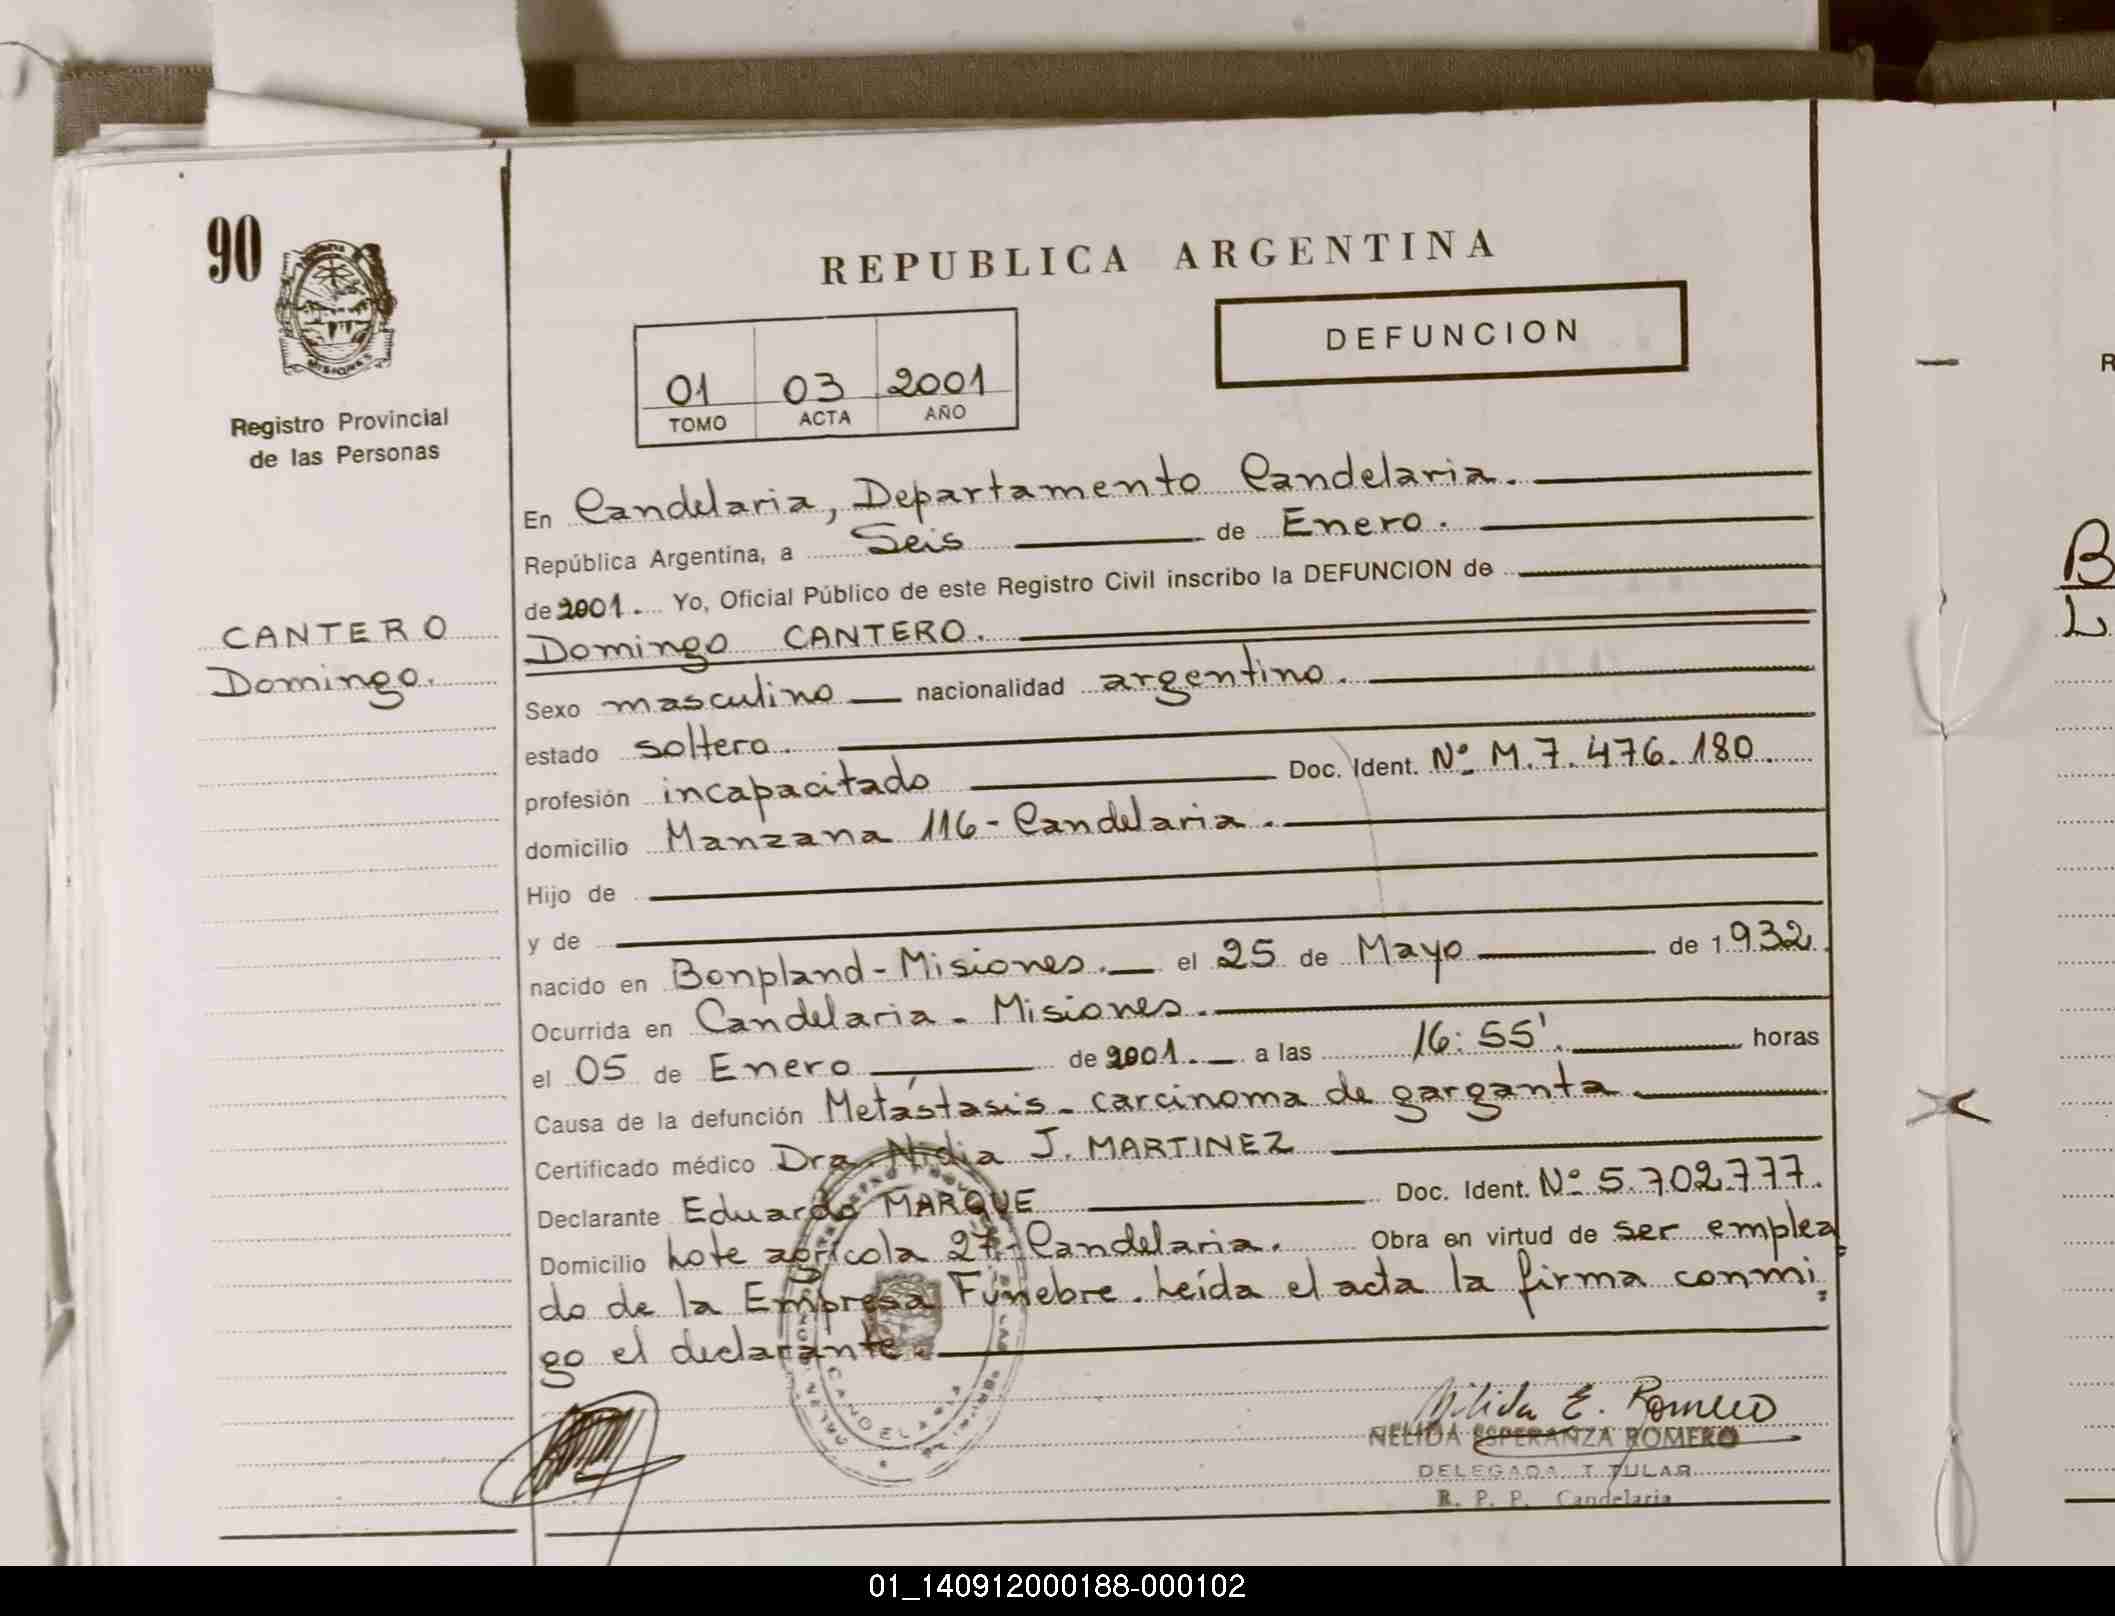 90
MISIONES
Registro Provincial
de las Personas
CANTERO
Domingo.
REPUBLICA ARGENTINA
DEFUNCION
01 03 2001
TOMO ACTA AÑO
En Candelaria, Departamento Candelaria.
República Argentina, a Seis de Enero.
de 2001. Yo, Oficial Público de este Registro Civil inscribo la DEFUNCION de
Domingo CANTERO.
Sexo masculino nacionalidad argentino.
estado soltero.
profesión incapacitado Doc. Ident. Nº M.7.476.180.
domicilio Manzana 116 - Candelaria.
Hijo de
y de
nacido en Bonpland - Misiones. el 25 de Mayo de 1.932.
Ocurrida en Candelaria - Misiones.
el 05 de Enero de 2001. a las 16:55'. horas
Causa de la defunción Metástasis - carcinoma de garganta
Certificado médico Dra. Nidia J. MARTINEZ
Declarante Eduardo MARQUE Doc. Ident. Nº 5.702.777.
Domicilio Lote agrícola 27 - Candelaria. Obra en virtud de ser emplea
do de la Empresa Fúnebre. Leída el acta la firma conmi
go el declarante.
CANDELARIA
Nélida E. Romero
NELIDA ESPERANZA ROMERO
DELEGADA TITULAR
R. P. P. Candelaria
R
B
L
01_140912000188-000102